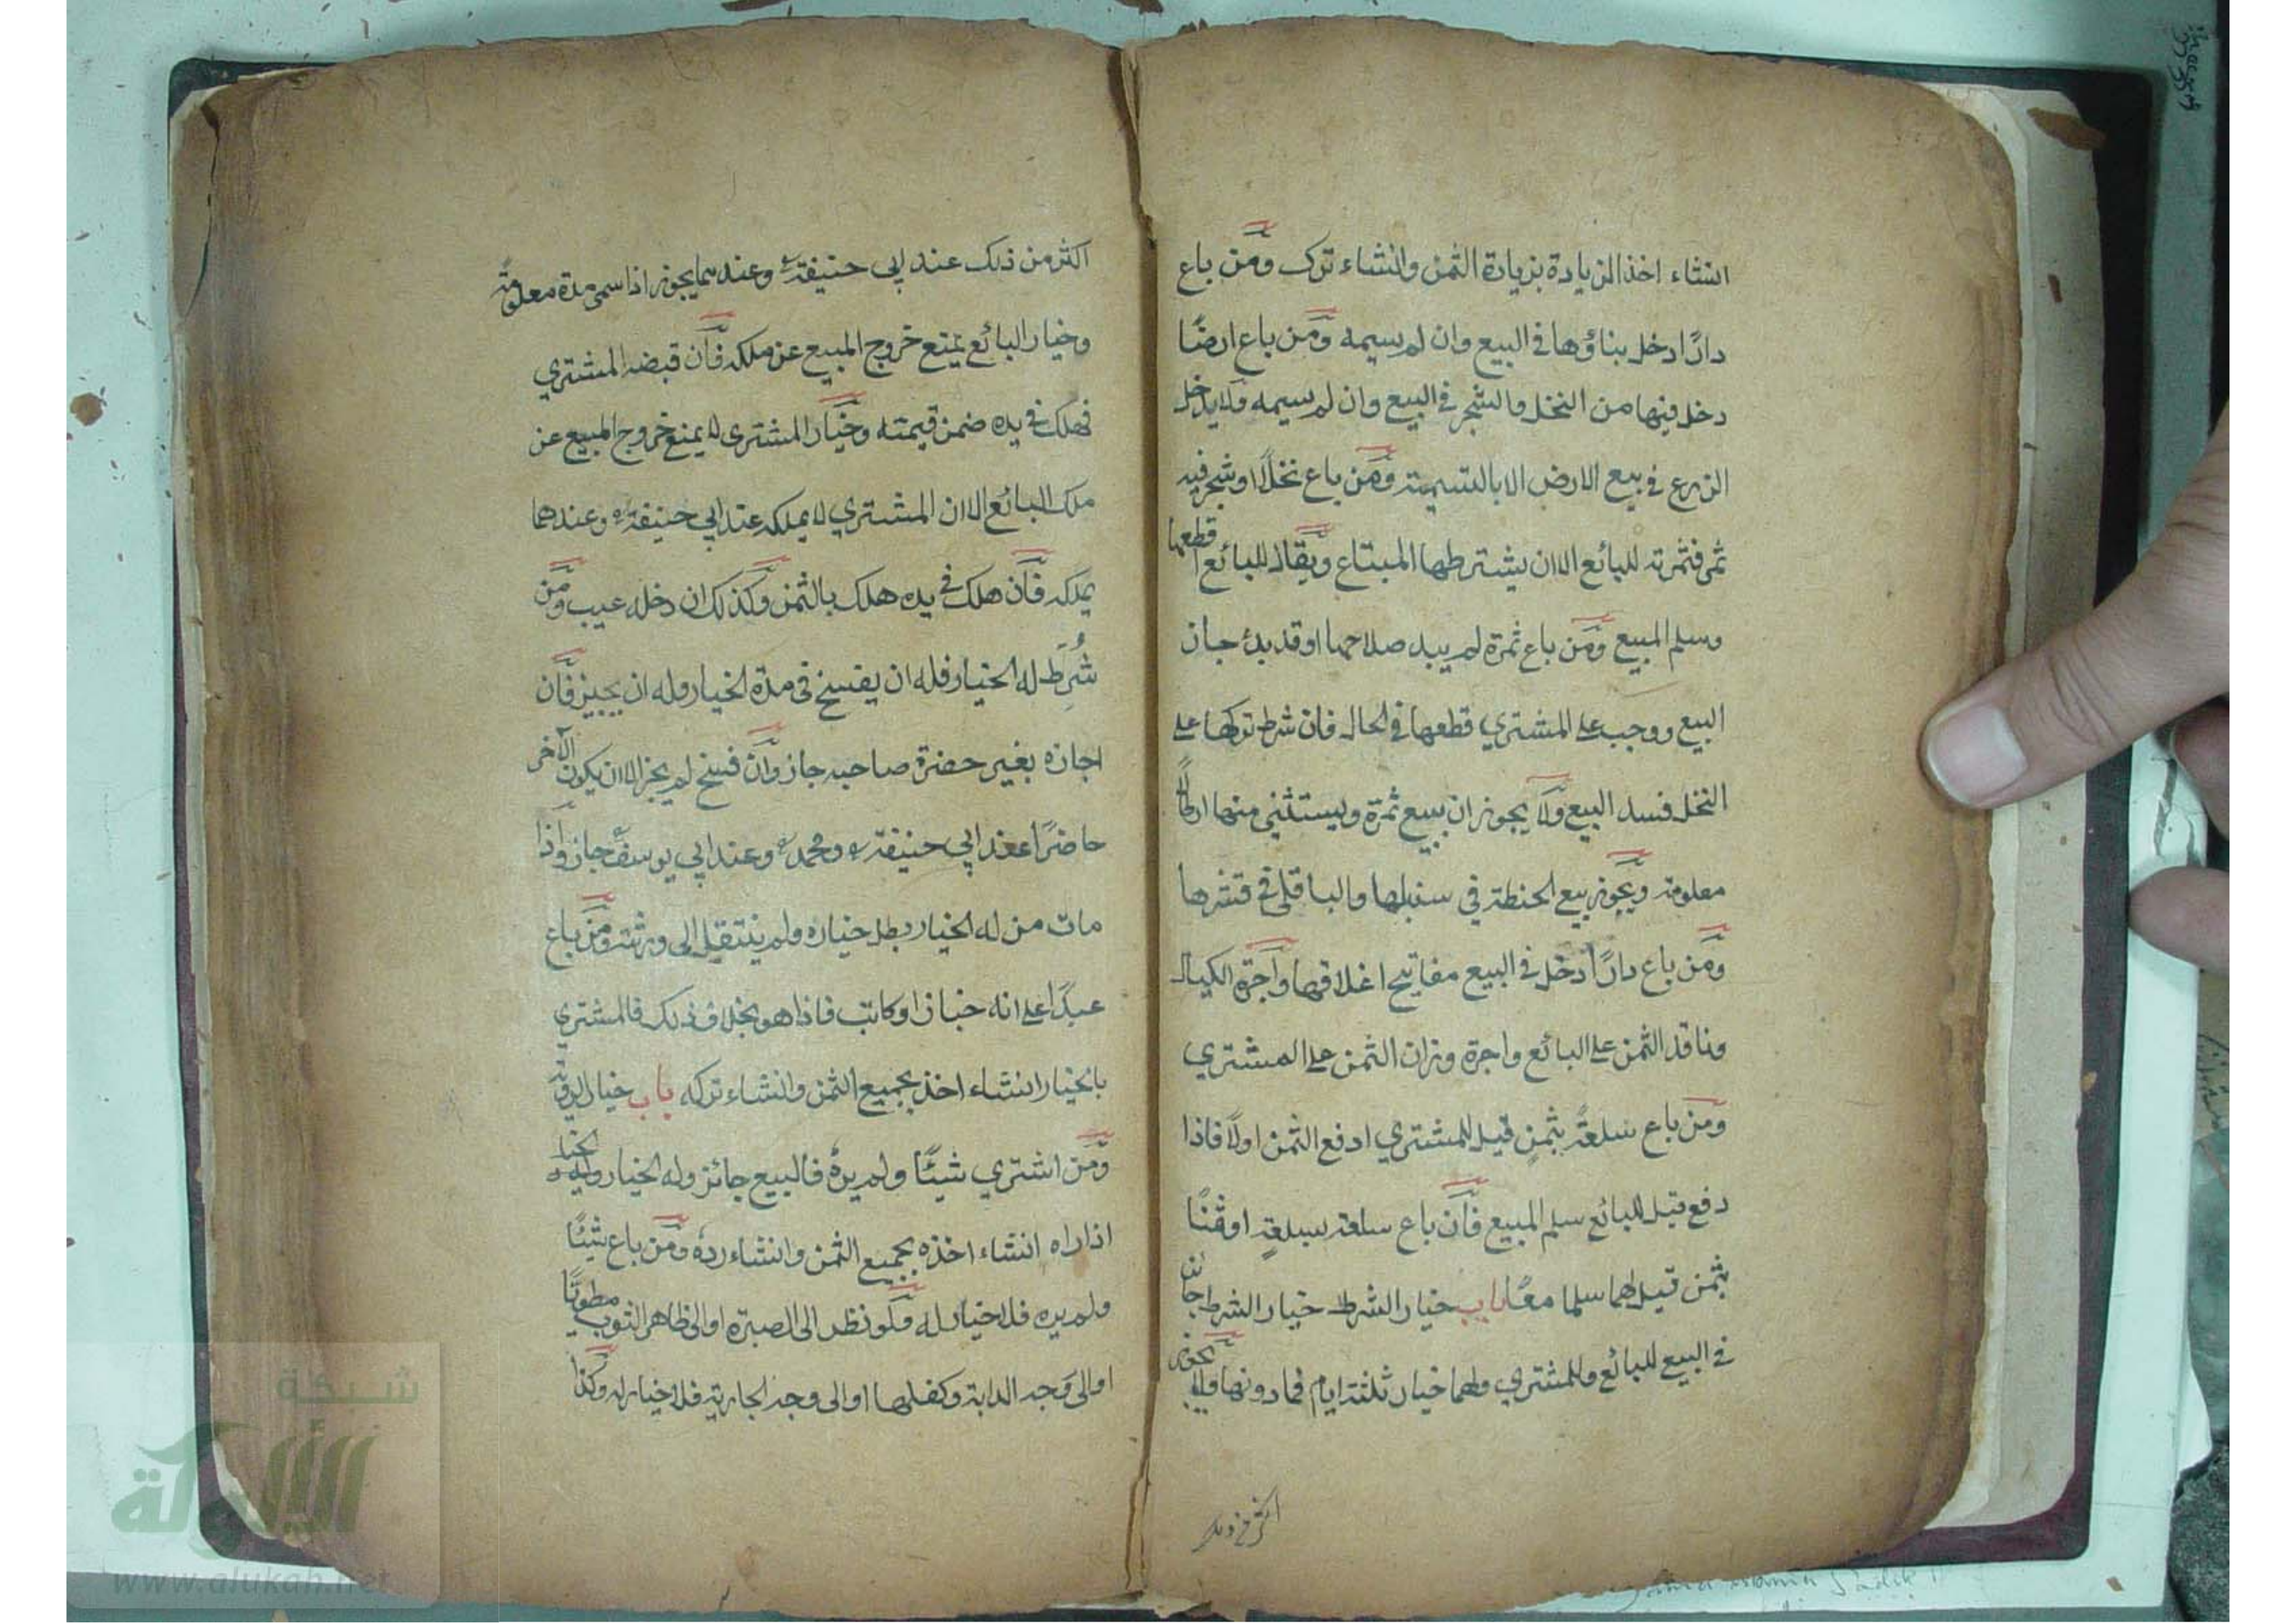 انشاء اخذ الزيادة بزيادة الثمن وانشاء ترك ومن باع
دارًا دخل بناؤها في البيع وان لم يسمه ومن باع ارضًا
دخل فيها من النخل والشجر في البيع وان لم يسمه ولا يدخل
الزرع في بيع الارض الا بالتسمية ومن باع نخلًا او شجر فيه
ثمر فثمرته للبائع الا ان يشترطها المبتاع ويقال للبائع اقطعها
وسلم المبيع ومن باع ثمرة لم يبد صلاحها او قد بدئ جاز
البيع ووجب على المشتري قطعها في الحال فان شرط تركها على
النخل فسد البيع ولا يجوز ان يبيع ثمرة ويستثني منها ارطالًا
معلومة ويجوز بيع الحنطة في سنبلها والباقلى في قشرها
ومن باع دارًا دخل في البيع مفاتيح اغلاقها واجرة الكيال
وناقد الثمن على البائع واجرة وزان الثمن على المشتري
ومن باع سلعةً بثمنٍ قيل للمشتري ادفع الثمن اولًا فاذا
دفع قيل للبائع سلم المبيع فان باع سلعة بسلعةٍ او ثمنًا
بثمن قيل لهما سلما معًا باب خيار الشرط خيار الشرط جائز
في البيع للبائع وللمشتري ولهما خيار ثلثة ايام فما دونها ولا يجوز
اكثر من ذلك
اكثر من ذلك عند ابي حنيفة وعندهما يجوز اذا سمى مدة معلومةً
وخيار البائع يمنع خروج المبيع عن ملكه فان قبضه المشتري
فهلك في يده ضمن قيمته وخيار المشتري لا يمنع خروج المبيع عن
ملك البائع الا ان المشتري لا يملكه عند ابي حنيفة وعندهما
يملكه فان هلك في يده هلك بالثمن وكذلك ان دخله عيب ومن
شُرِطَ له الخيار فله ان يفسخ في مدة الخيار وله ان يجيز فان
اجازه بغير حضرة صاحبه جاز وان فسخ لم يجز الا ان يكون الآخر
حاضرًا عند ابي حنيفة ومحمد وعند ابي يوسف جاز واذا
مات من له الخيار بطل خياره ولم ينتقل الى ورثته ومن باع
عبدًا على انه خباز او كاتب فاذا هو بخلاف ذلك فالمشتري
بالخيار انشاء اخذ بجميع الثمن وانشاء تركه باب خيار الرؤية
ومن اشتري شيئًا ولم يره فالبيع جائز وله الخيار وله الخيار
اذا راه انشاء اخذه بجميع الثمن وانشاء رده ومن باع شيئًا
ولم يره فلا خيار له ولو نظر الى الصبرة او الى ظاهر الثوب مطويًا
او الى وجه الدابة وكفلها او الى وجه الجارية فلا خيار له وكذا
شبكة
الألوكة
www.alukah.net